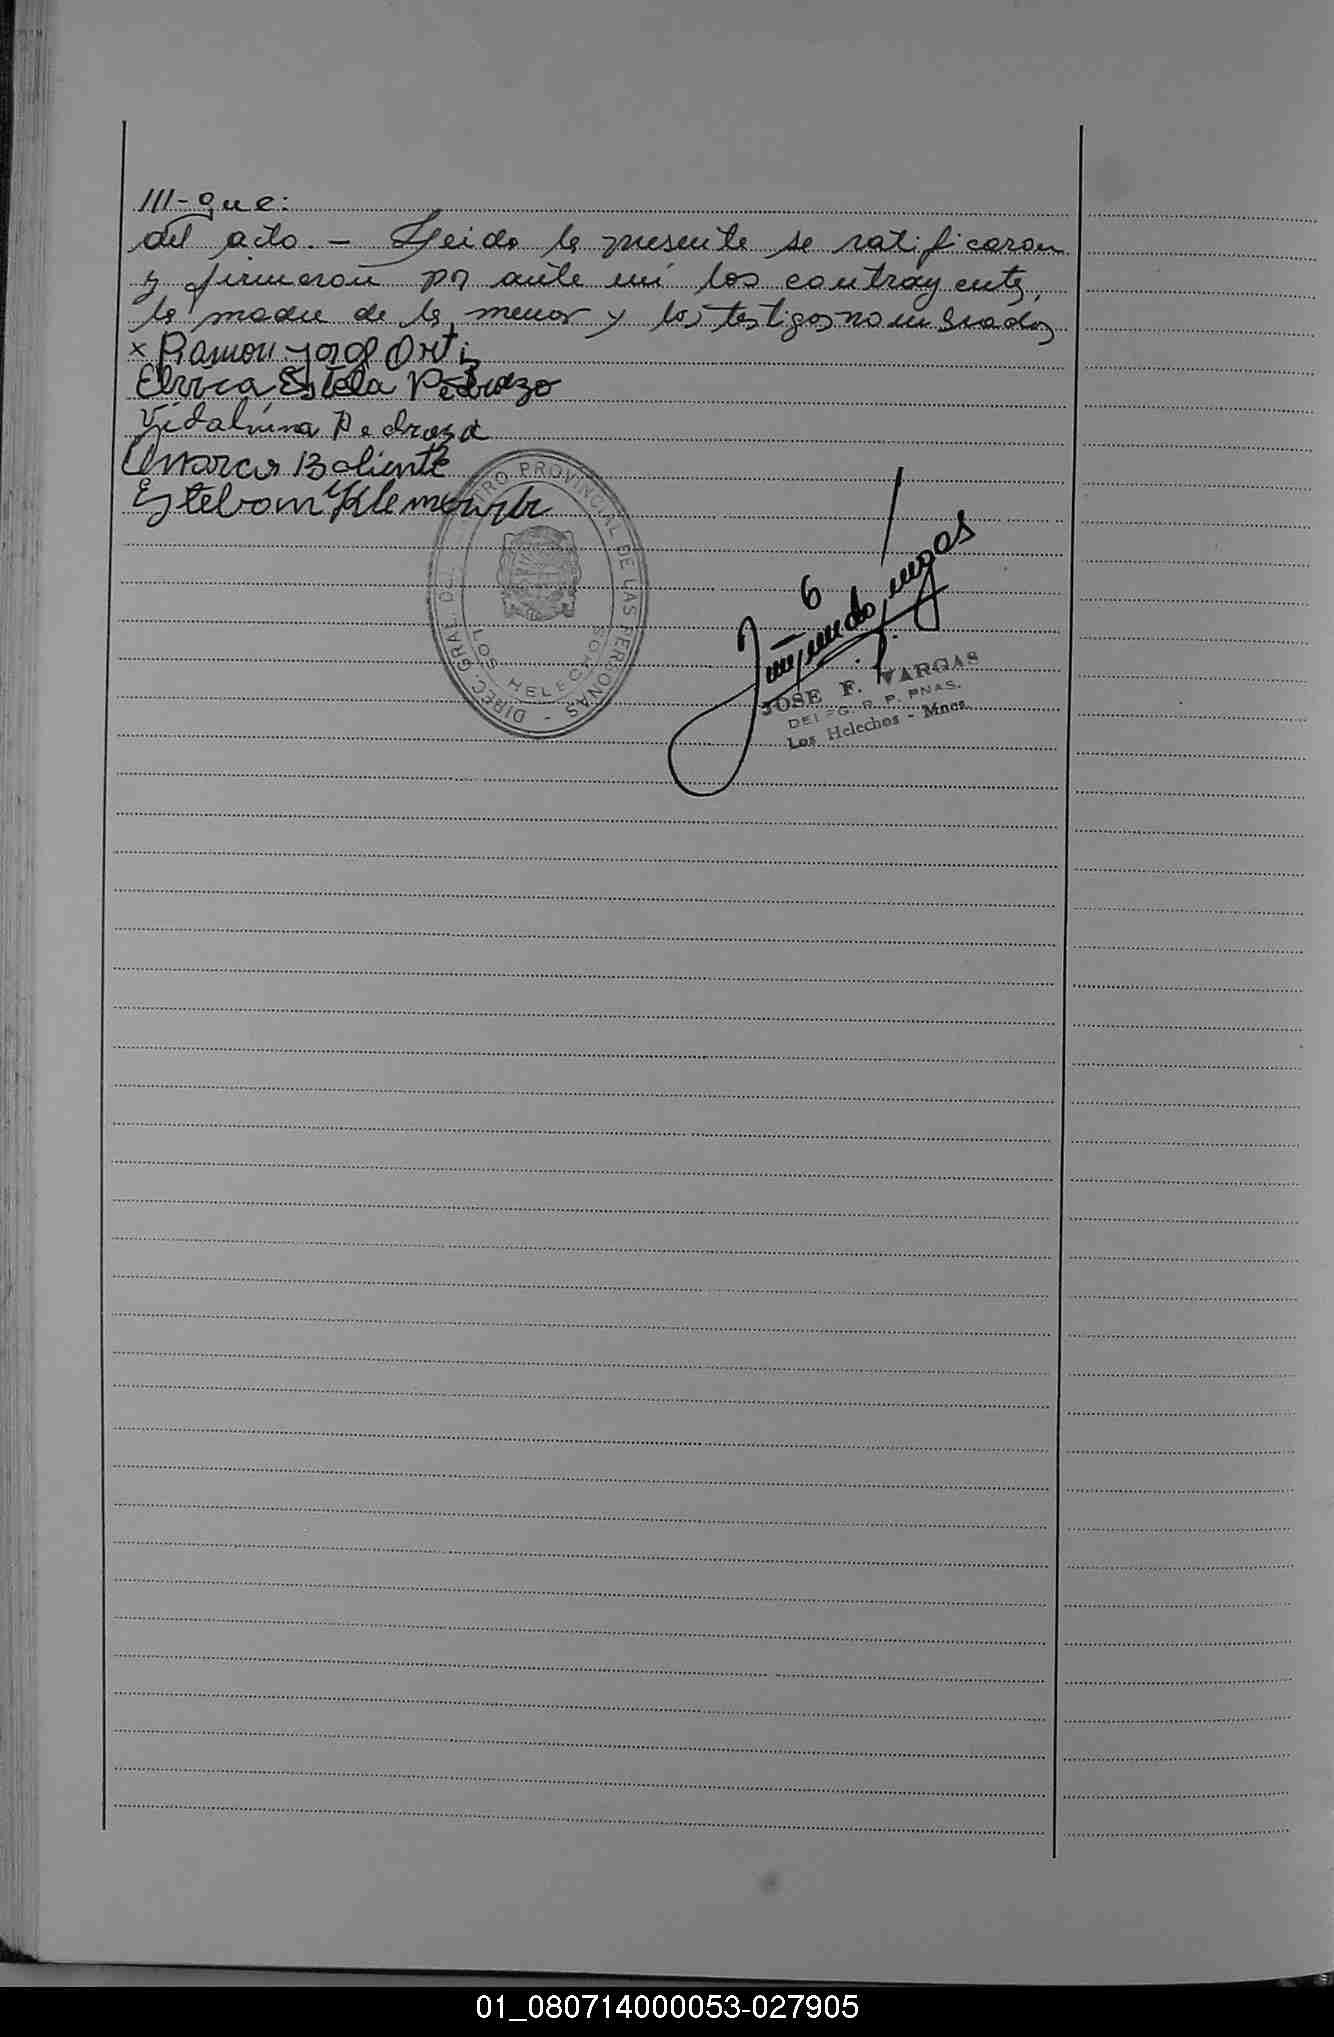 III-que:
del acto. - Leida la presente se ratificaron
y firmaron por ante mi los contrayentes,
la madre de la menor y los testigos nombrados
x Ramon Jorge Ortiz
Estela Pedrozo
Vidalvina Pedroza
Marcos Baliente
Esteban
DIREC. GRAL. DEL REGISTRO PROVINCIAL DE LAS PERSONAS -
LOS HELECHOS
JOSE F. VARGAS
DELEG. R. P. PNAS.
Los Helechos - Mnes.
01_080714000053-027905